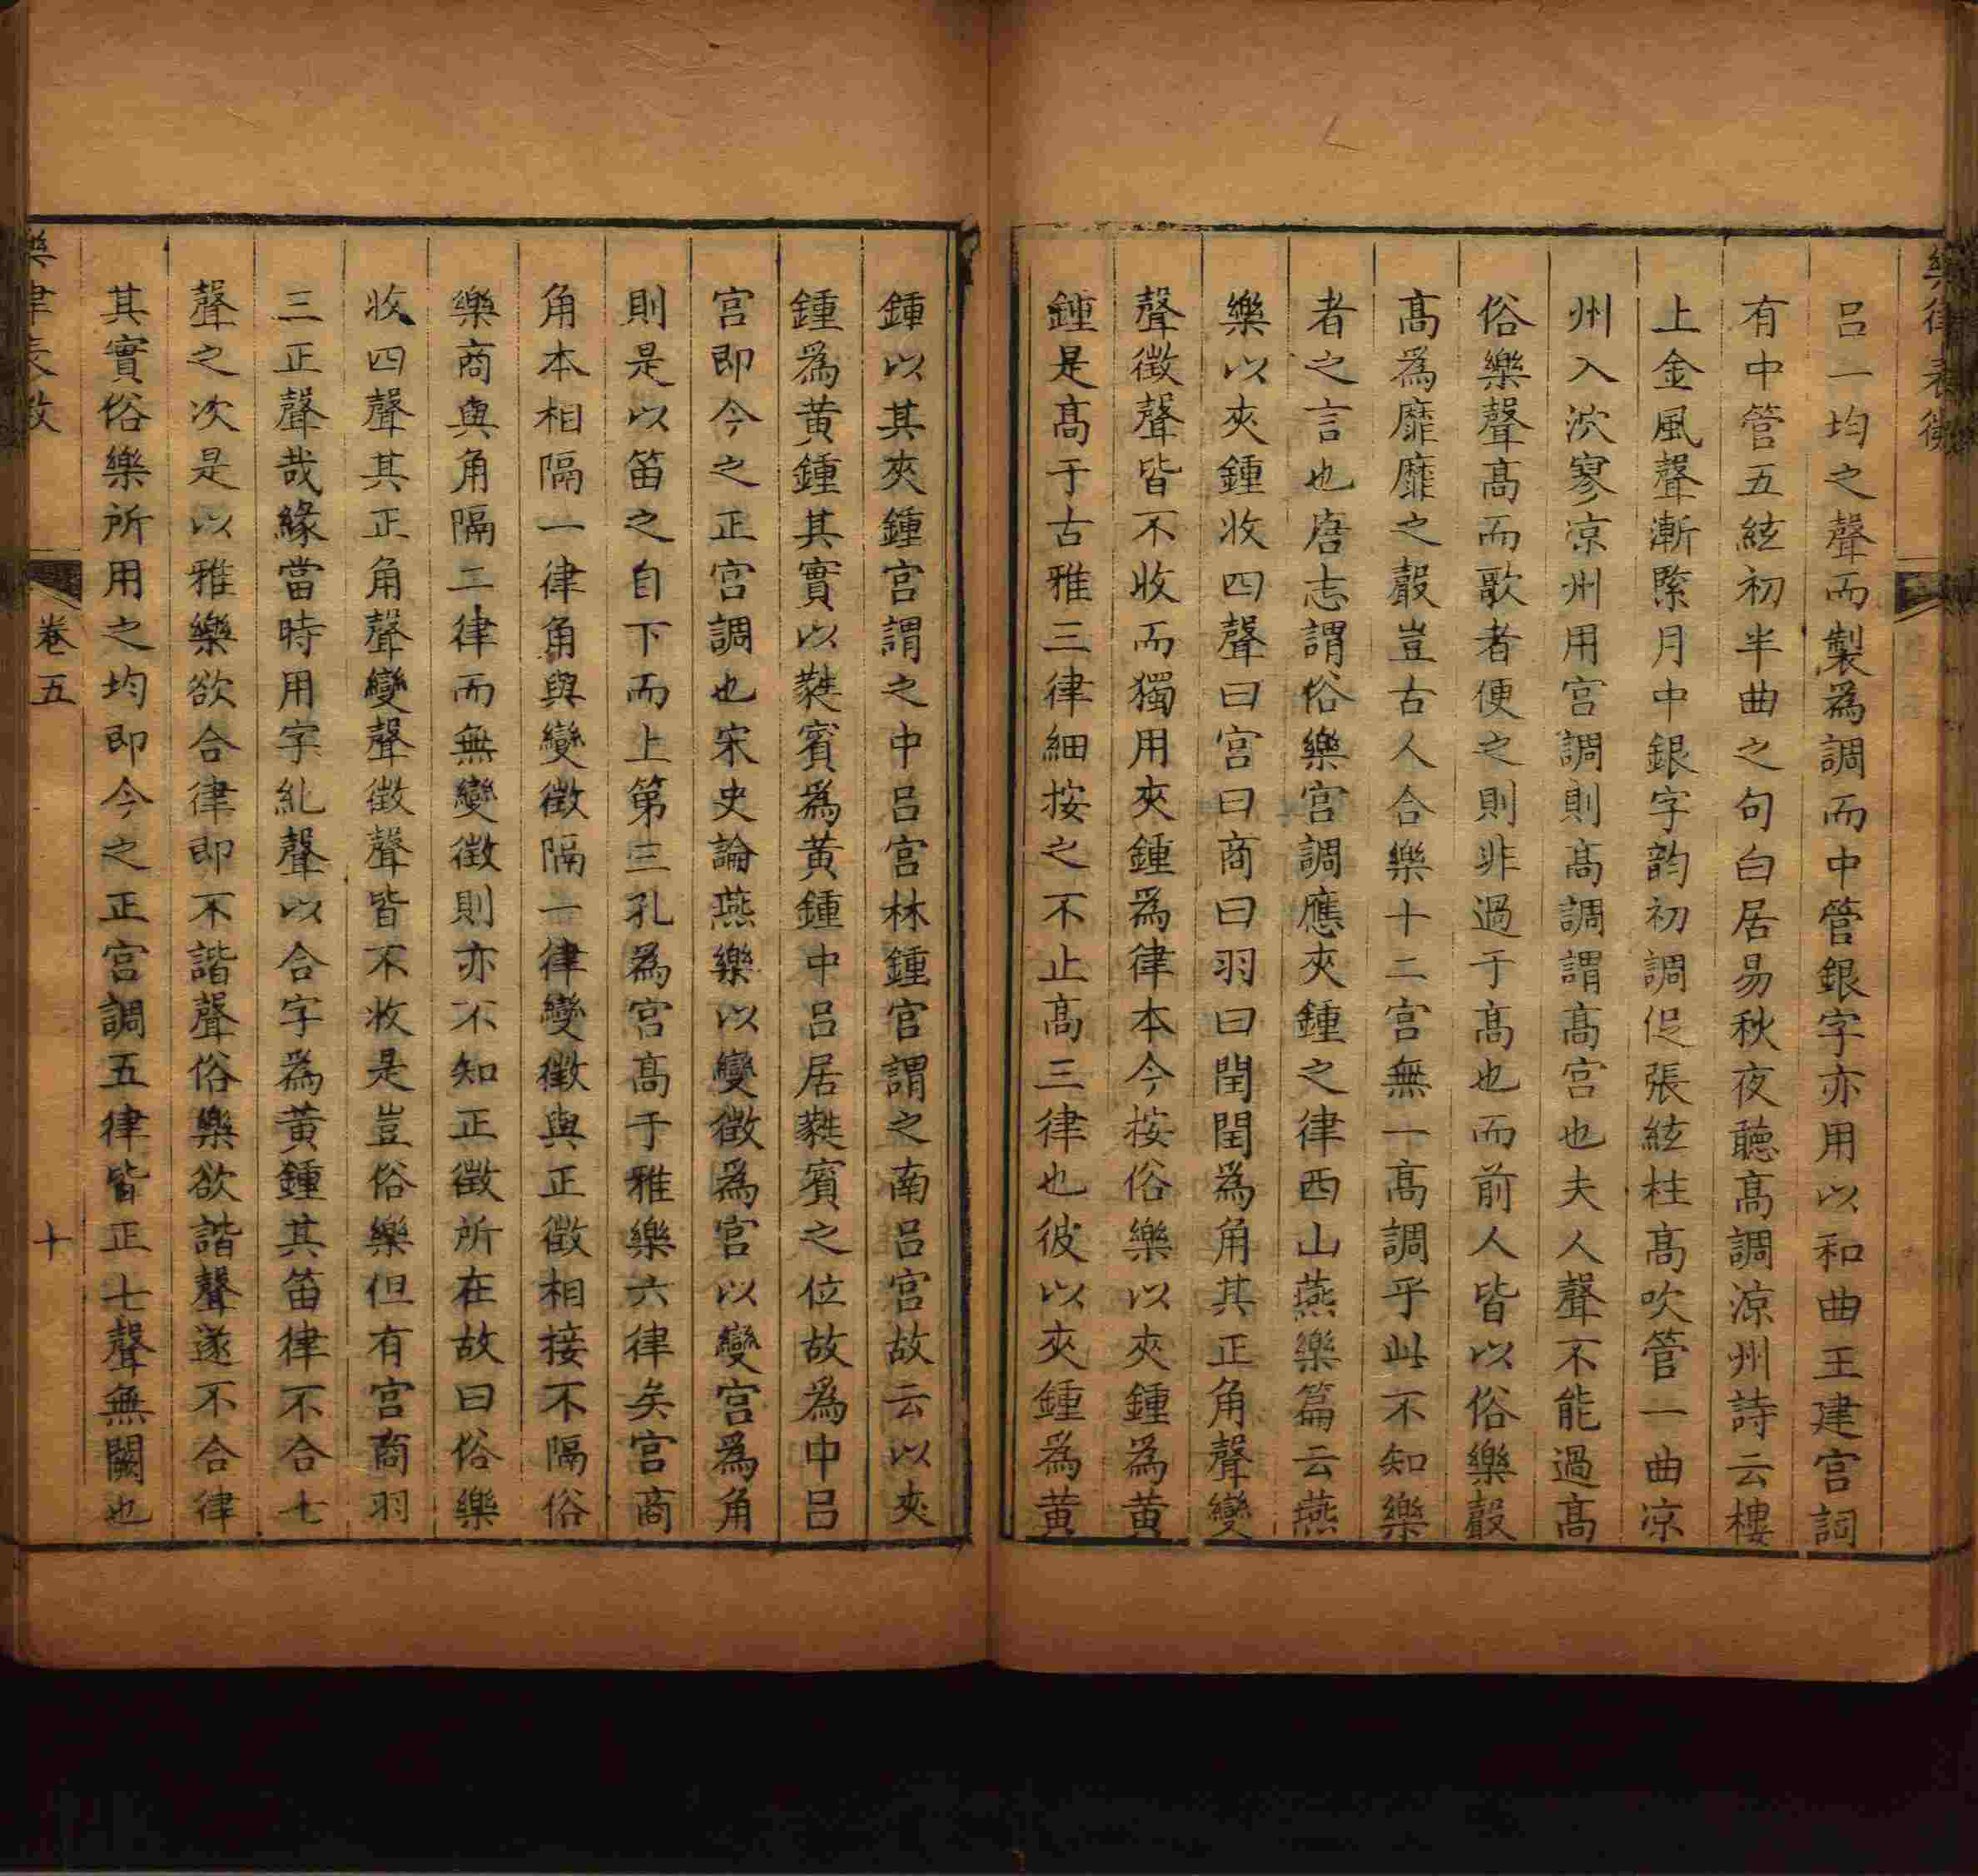 樂律表微
呂一均之聲而製為調而中管銀字亦用以和曲王建宮詞
有中管五絃初半曲之句白居易秋夜聽髙調涼州詩云樓
上金風聲漸緊月中銀字韵初調促張絃柱髙吹管一曲涼
州入泬寥凉州用宮調則髙調謂髙宮也夫人聲不能過髙
俗樂聲髙而歌者便之則非過于髙也而前人皆以俗樂聲
髙為靡靡之聲豈古人合樂十二宮無一髙調乎此不知樂
者之言也唐志謂俗樂宮調應夾鍾之律西山燕樂篇云燕
樂以夾鍾收四聲曰宮曰商曰羽曰閏閏為角其正角聲變
聲徵聲皆不收而獨用夾鍾為律本今按俗樂以夾鍾為黄
鍾是髙于古雅三律細按之不止髙三律也彼以夾鍾為黄
鍾以其夾鍾宮謂之中呂宮林鍾宮謂之南呂宮故云以夾
鍾為黄鍾其實以蕤賓為黄鍾中呂居蕤賓之位故為中呂
宮即今之正宮調也宋史論燕樂以變徵為宮以變宮為角
則是以笛之自下而上第三孔為宮髙于雅樂六律矣宮商
角本相隔一律角與變徵隔一律變徵與正徵相接不隔俗
樂商與角隔二律而無變徵則亦不知正徵所在故曰俗樂
收四聲其正角聲變聲徵聲皆不收是豈俗樂但有宮商羽
三正聲哉緣當時用字紀聲以合字為黄鍾其笛律不合七
聲之次是以雅樂欲合律即不諧聲俗樂欲諧聲遂不合律
其實俗樂所用之均即今之正宮調五律皆正七聲無闕也
樂律表微
卷五
十